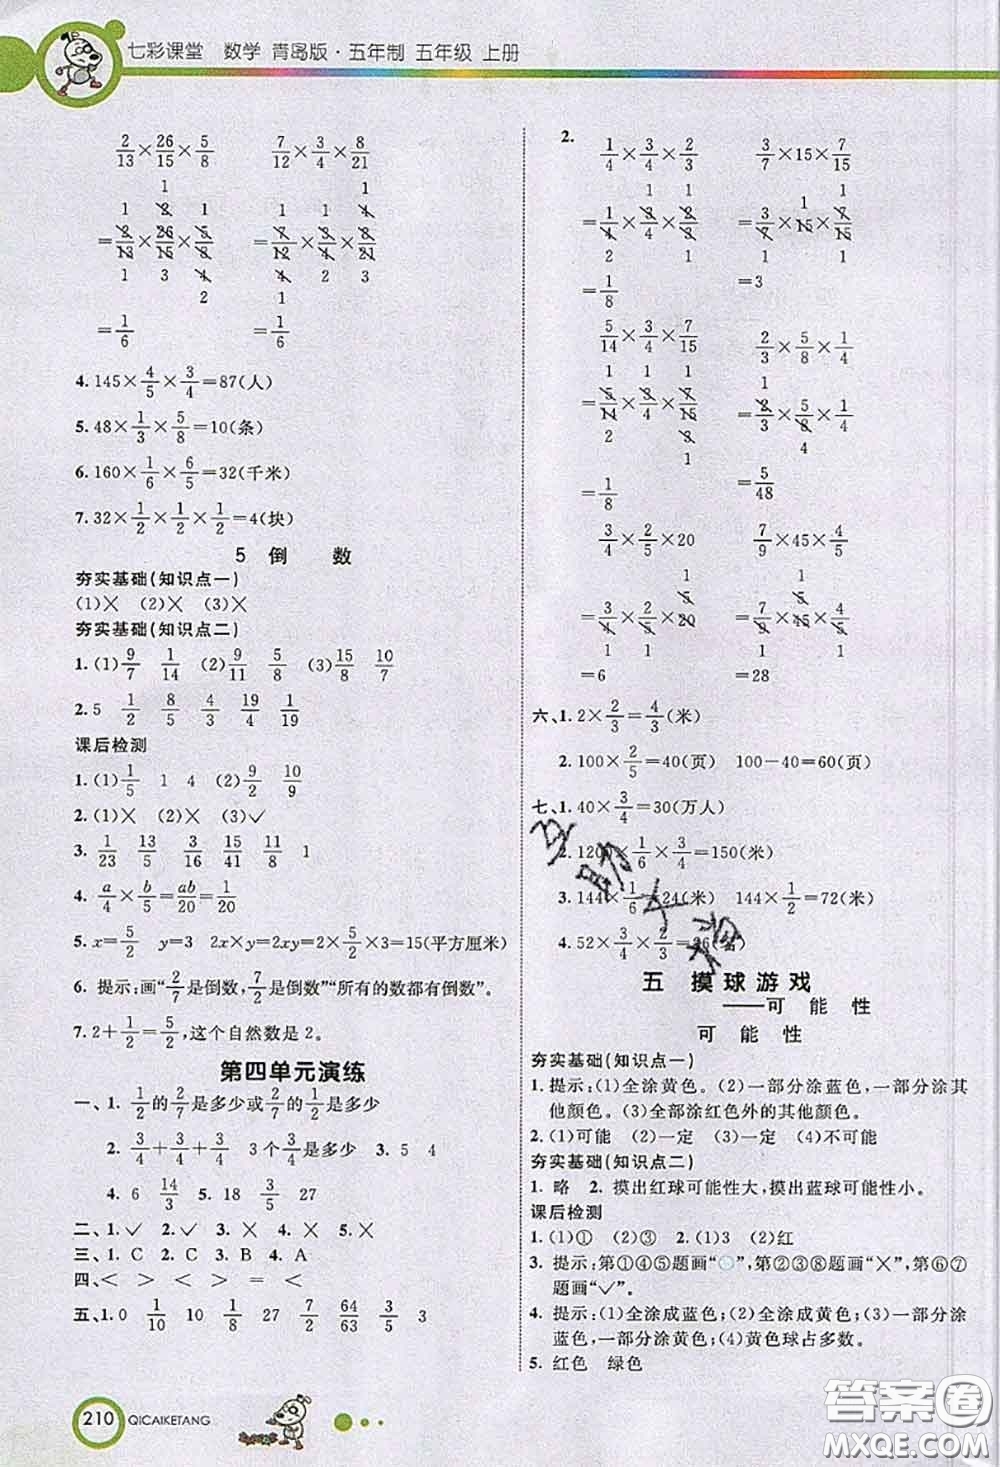 七彩课堂 数学 青岛版·五年制 五年级 上册
2/13×26/15×5/8 7/12×3/4×8/21
=1/6 =1/6
4. 145×4/5×3/4=87(人)
5. 48×1/3×5/8=10(条)
6. 160×1/6×6/5=32(千米)
7. 32×1/2×1/2×1/2=4(块)
5 倒 数
夯实基础(知识点一)
(1)× (2)× (3)×
夯实基础(知识点二)
1. (1)9/7 1/14 (2)9/11 5/8 (3)15/8 10/7
2. 5 1/2 8/5 4/3 19/4 1/19
课后检测
1. (1)1/5 1 4 (2)9/2 10/9
2. (1)× (2)× (3)✓
3. 1/23 13/5 3/16 15/41 11/8 1
4. a/4×b/5=ab/20=1/20
5. x=5/2 y=3 2x×y=2xy=2×5/2×3=15(平方厘米)
6. 提示:画“2/7是倒数,7/2是倒数”“所有的数都有倒数”。
7. 2+1/2=5/2,这个自然数是2。
第四单元演练
一、1. 1/2的2/7是多少或2/7的1/2是多少
2. 3/4+3/4+3/4 3个3/4是多少 3. 5 4
4. 6 14/3 5. 18 3/5 27
二、1. ✓ 2. ✓ 3. × 4. × 5. ×
三、1. C 2. C 3. A 4. A
四、< > < > = <
五、1. 0 1/10 10 1/6 27 7/2 64/63 3/5 3
2. 1/4×3/4×2/3 3/7×15×7/15
=1/8 =3
5/14×3/4×7/15 2/3×5/8×1/4
=1/8 =5/48
3/4×2/5×20 7/9×45×4/5
=6 =28
六、1. 2×2/3=4/3(米)
2. 100×2/5=40(页) 100-40=60(页)
七、1. 40×3/4=30(万人)
2. 1200×1/6×3/4=150(米)
3. 144×1/6=24(米) 144×1/2=72(米)
4. 52×3/4×2/3=26
五 摸球游戏
——可 能 性
可 能 性
夯实基础(知识点一)
1. 提示:(1)全涂黄色。(2)一部分涂蓝色,一部分涂其
他颜色。(3)全部涂红色外的其他颜色。
2. (1)可能 (2)一定 (3)一定 (4)不可能
夯实基础(知识点二)
1. 略 2. 摸出红球可能性大,摸出蓝球可能性小。
课后检测
1. (1)① (2)③ 2. (1)3 (2)红
3. 提示:第①④⑤题画“○”,第②③⑧题画“×”,第⑥⑦
题画“✓”。
4. 提示:(1)全涂成蓝色;(2)全涂成黄色;(3)一部分涂
蓝色,一部分涂黄色;(4)黄色球占多数。
5. 红色 绿色
210 QICAIKETANG
答案圈
MXQE.COM